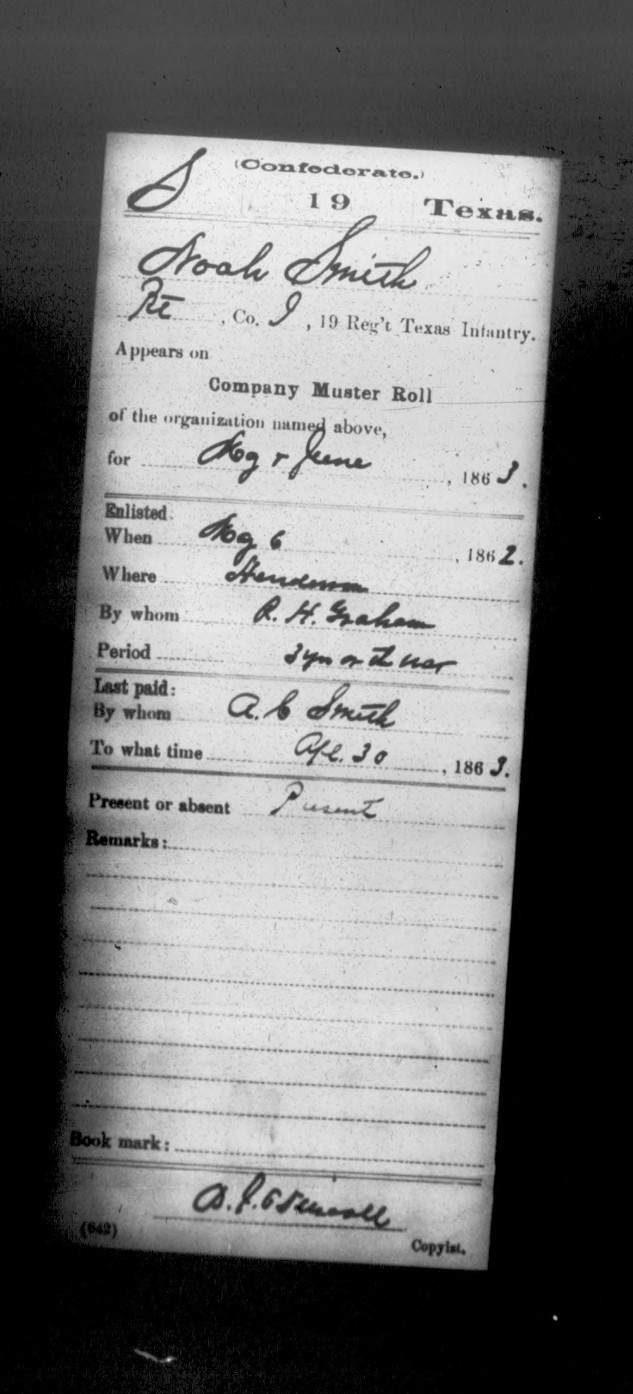 (Confederate.)
S 19 Texas.
Noah Smith
Pvt, Co. I, 19 Reg't Texas Infantry.
Appears on
Company Muster Roll
of the organization named above,
for My & June, 1863.
Enlisted.
When My 6, 1862.
Where Henderson
By whom R. H. Graham
Period 3 yrs or the war
Last paid:
By whom A. C Smith
To what time Apl. 30, 1863.
Present or absent Present
Remarks:
Book mark:
(642)
Copyist.